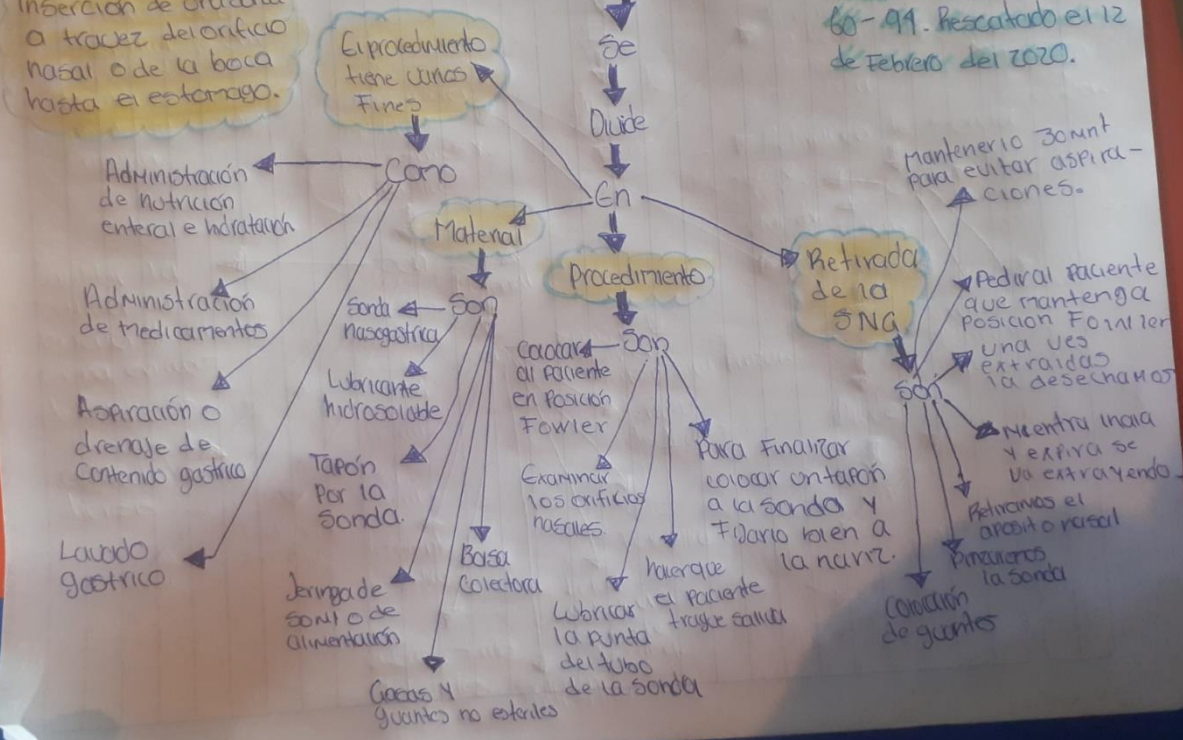 inserción de
a travez del orificio
nasal o de la boca
hasta el estomago.
60-99. Rescatado el 12
de Febrero del 2020.
El procedimiento
tiene unos
Fines
Se
Divide
En
Como
Administración
de nutrición
enteral e hidratación
Administración
de medicamentos
Aspiración o
drenaje de
Contenido gastrico
Lavado
gastrico
Material
Son
Sonda
nasogastrica
Lubricante
hidrosoluble
Tapón
Por la
Sonda.
Jeringa de
50ml o de
alimentación
Gasas y
guantes no esteriles
Bolsa
Colectora
Procedimiento
Son
Colocar
al paciente
en Posición
Fowler
Examinar
los orificios
nasales
Lubricar
la punta
del tubo
de la sonda
hacer que
el paciente
trague saliva
Para Finalizar
colocar un tapón
a la sonda y
Fijarlo bien a
la nariz.
Retirada
de la
SNG
Son
Mantenerlo 30
para evitar aspira-
ciones.
Pedir al paciente
que mantenga
posicion Fowller
una ves
extraidas
la desechamos
Mientra inala
y expira se
va extrayendo
Retiramos el
aposito nasal
Pinzaremos
la sonda
Colocación
de guantes